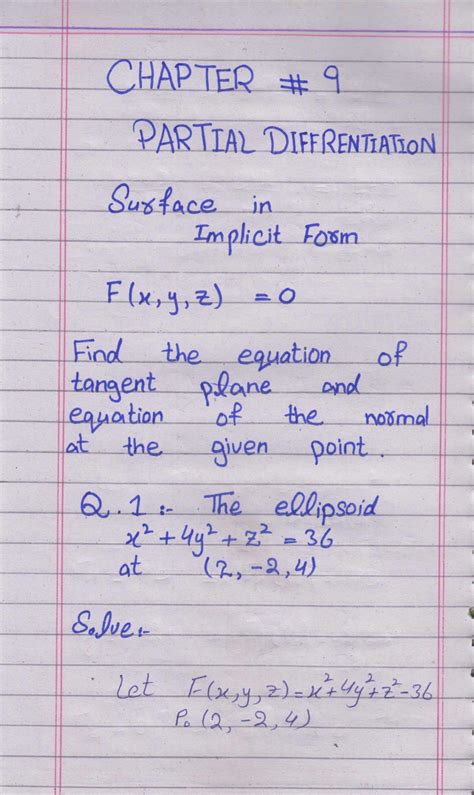 CHAPTER # 9
PARTIAL DIFFRENTIATION
Surface in
Implicit Form
F(x, y, z) = 0
Find the equation of
tangent plane and
equation of the normal
at the given point.
Q.1:- The ellipsoid
x² + 4y² + z² = 36
at (2, -2, 4)
Solve:-
Let F(x,y,z)=x²+4y²+z²-36
P₀ (2, -2, 4)